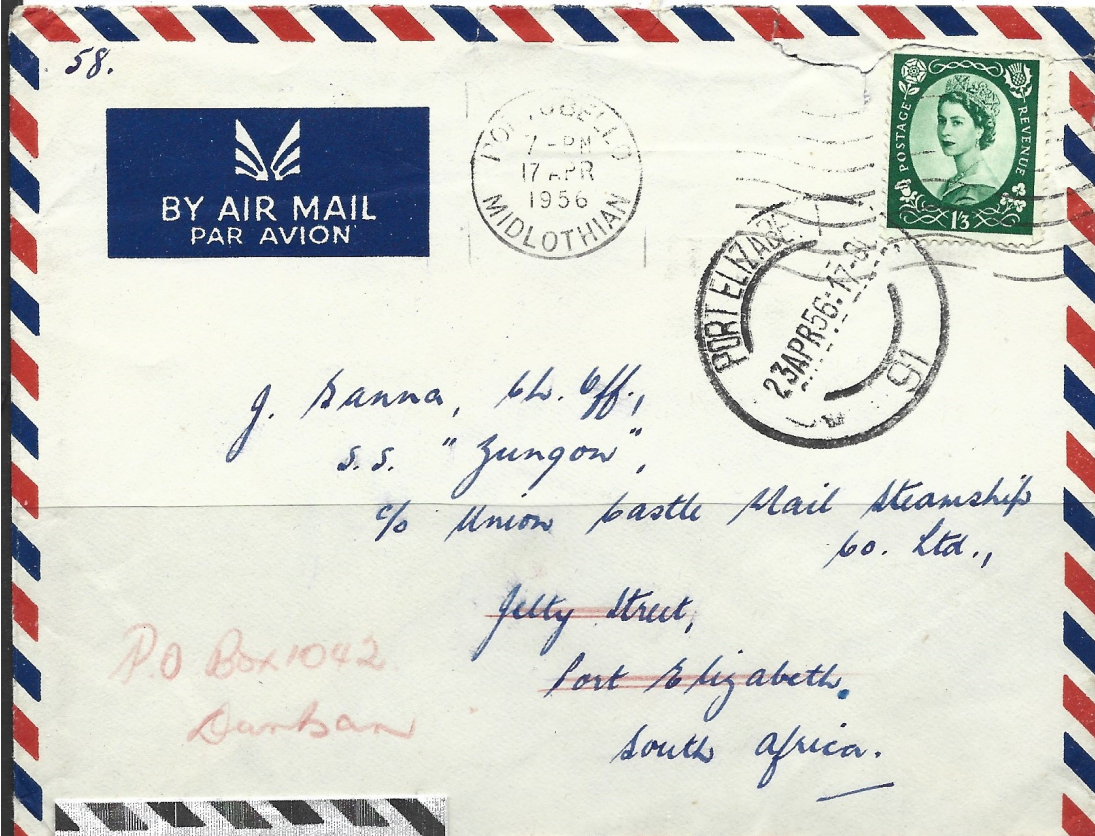 58.
BY AIR MAIL
PAR AVION
PORTOBELLO
7 - PM
17 APR
1956
MIDLOTHIAN
POSTAGE
REVENUE
1/3
PORT ELIZABE
23APR56
16
J. Hanna, Ch. Off.,
S.S. "Zungon",
c/o Union Castle Mail Steamship
Co. Ltd.,
Jetty Street,
Port Elizabeth,
South Africa.
P.O Box 1042
Durban